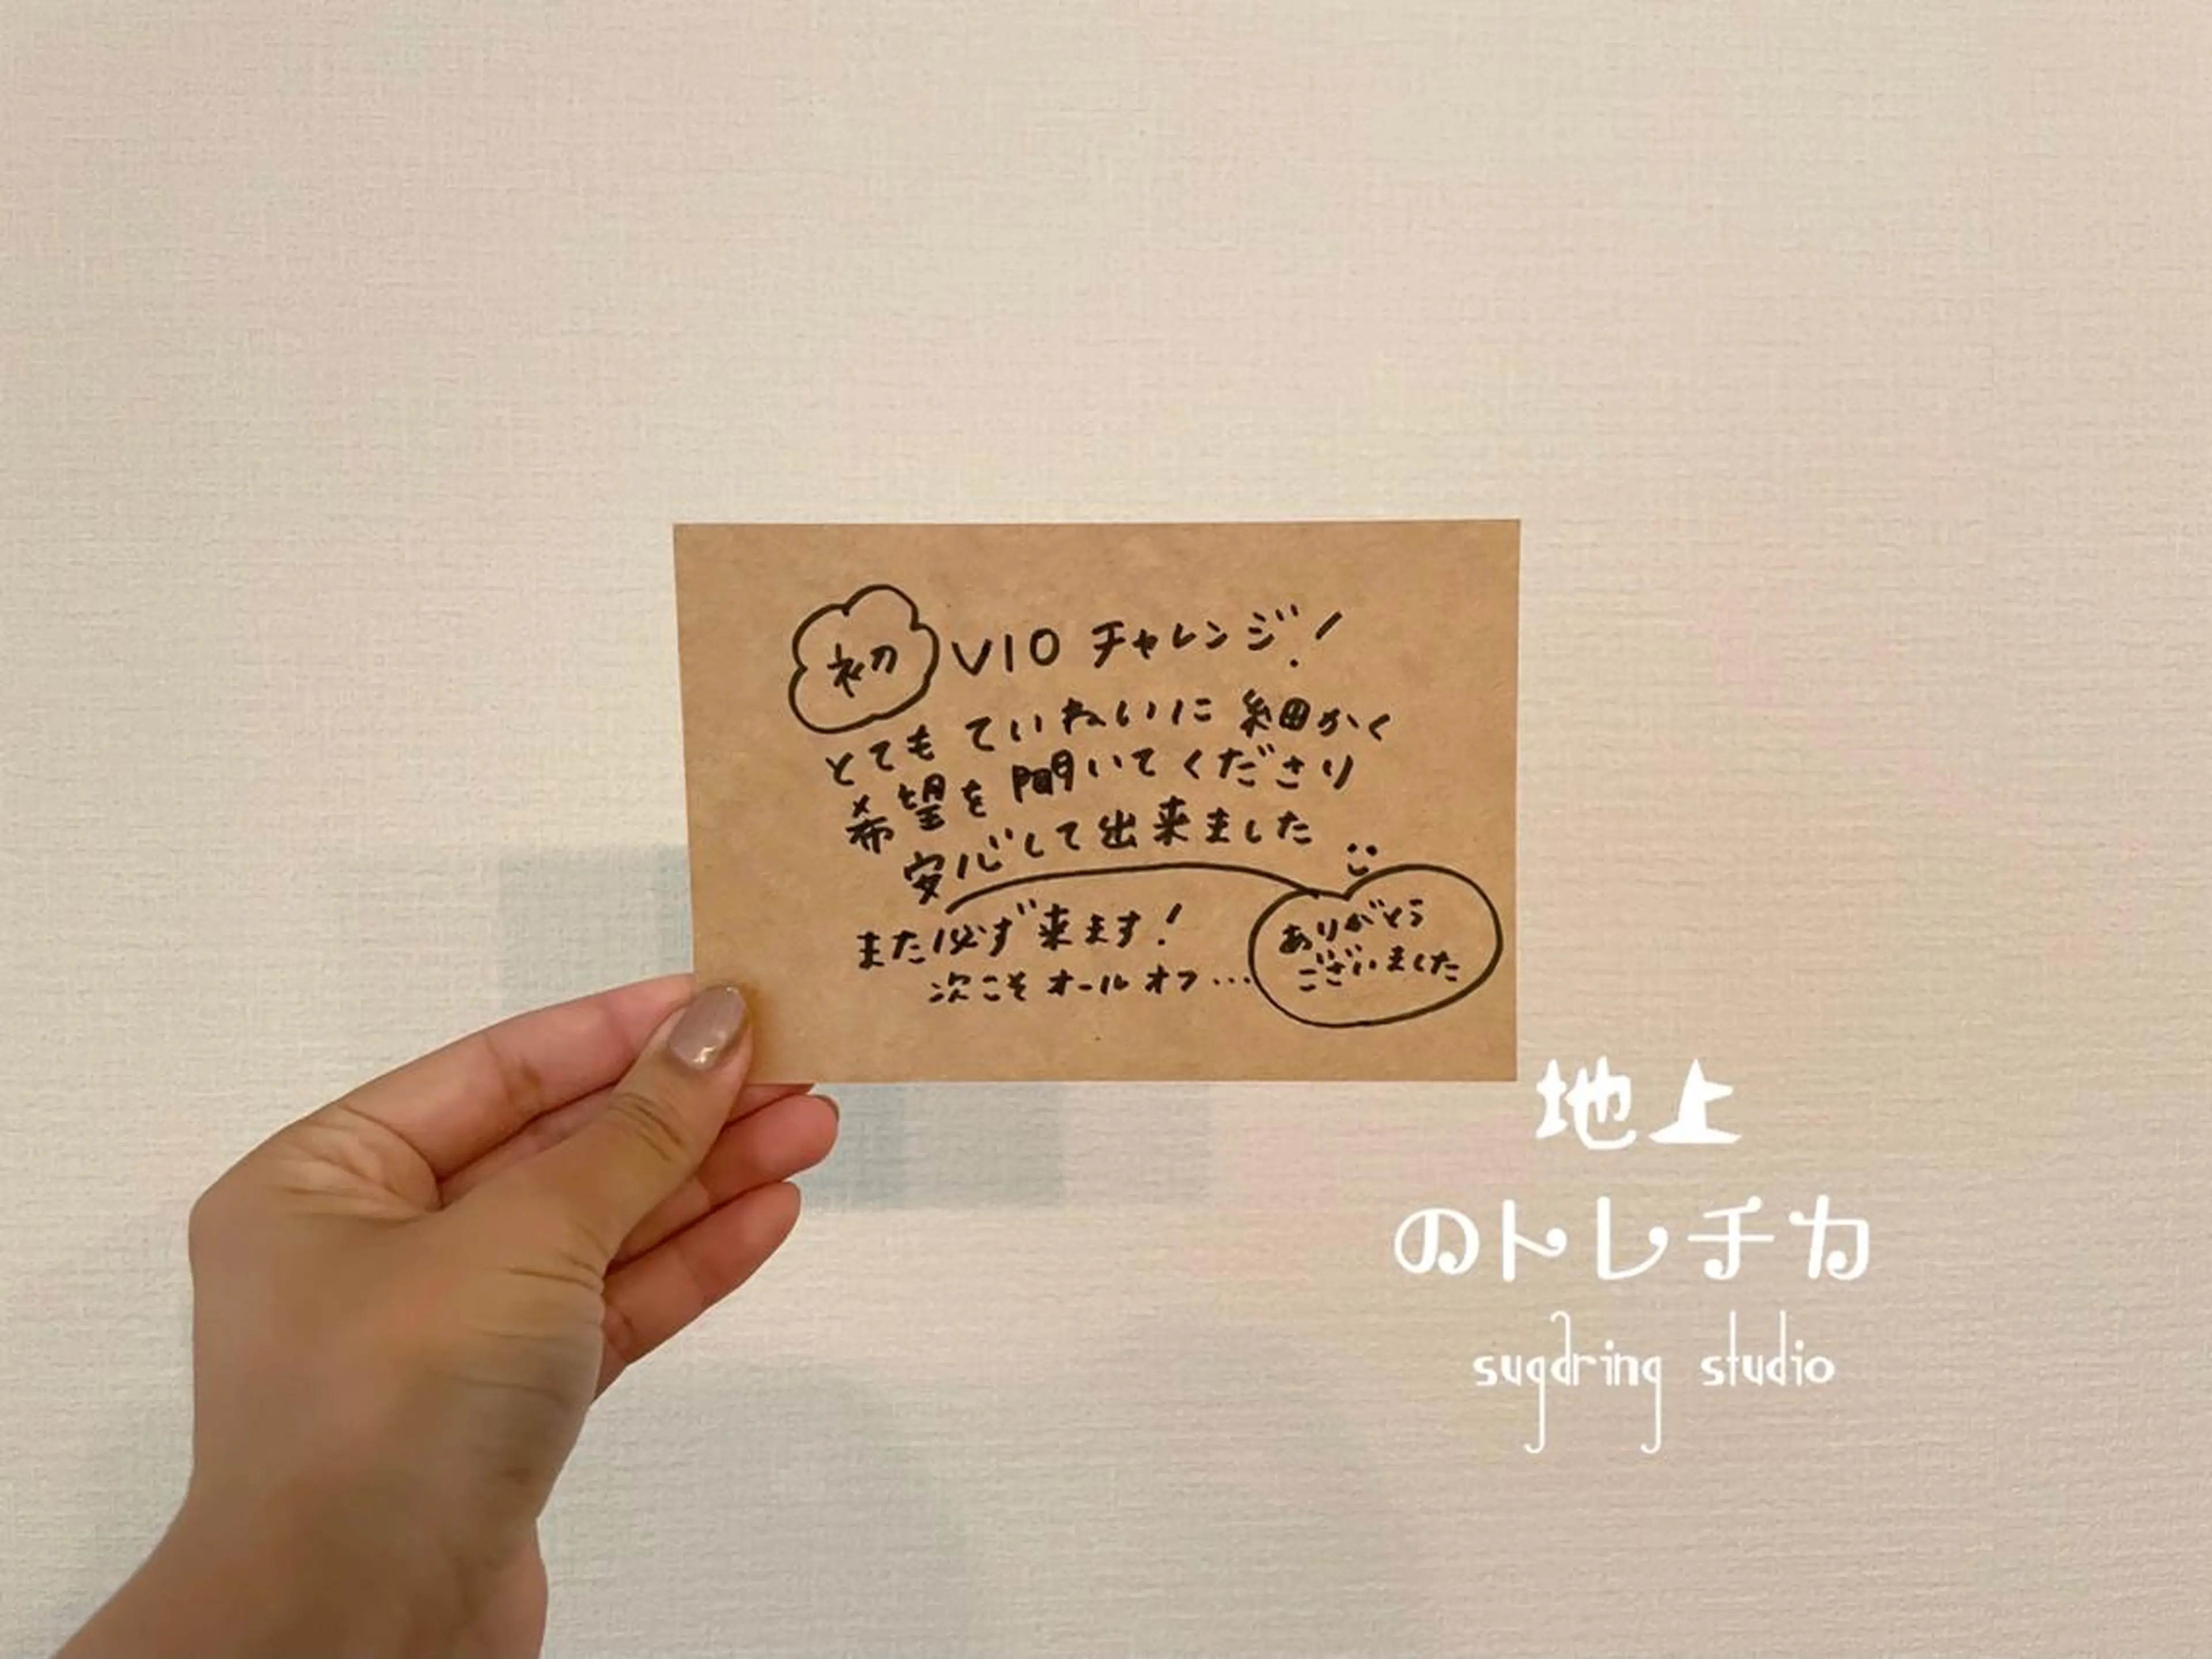 初 VIO チャレンジ!
とても ていねいに 細かく
希望を 聞いて くださり
安心して 出来ました
また必ず来ます!
次こそ オールオフ...
ありがとう
ございました
地上
のトレチカ
sugaring studio